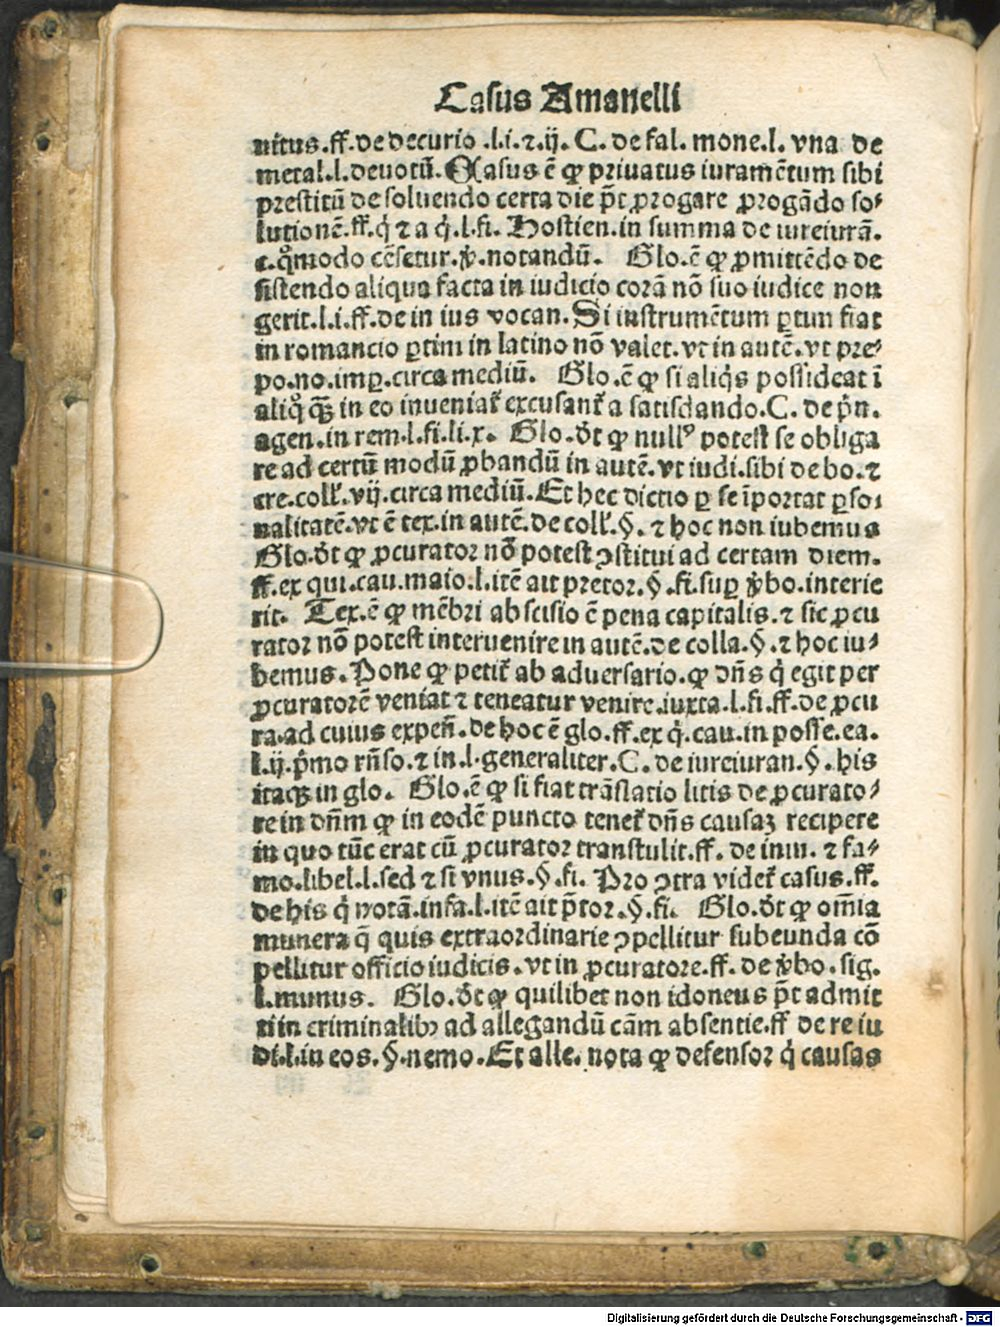 Casus Amanelli
nitus.ff.de decurio .l.i.⁊.ij. C. de fal. mone.l. vna de
metal.l.deuotū. Casus ē ꝙ priuatus iuramētum sibi
prestitū de soluendo certa die p̄t ꝓrogare ꝓrogādo so⸗
lutionē.ff.q̇ ⁊ a q̇.l.fi. Hostien.in summa de iureiurā.
c.qͦmodo cēsetur.ꝟ.notandū. Glo.ē ꝙ ꝓmittēdo de
sistendo aliqua facta in iudicio corā nō suo iudice non
gerit.l.i.ff.de in ius vocan. Si instrumētum ꝑtim fiat
in romancio ꝑtim in latino nō valet.vt in autē.vt pre⸗
po.no.imꝑ.circa mediū. Glo.ē ꝙ si aliq̇s possideat ī
aliqͦ qꝫ in eo inueniat᷑ excusant᷑ a satisdando.C. de p̄n.
agen.in rem.l.fi.li.x. Glo.dt̄ ꝙ null᷒ potest se obliga
re ad certū modū ꝓbandū in autē.vt iudi.sibi de bo.⁊
cre.coll᷑.vij.circa mediū. Et hec dictio ꝑ se īportat ꝑso⸗
nalitatē.vt ē tex.in autē.de coll᷑.§. ⁊ hoc non iubemus
Glo.dt̄ ꝙ ꝓcurator nō potest ꝯstitui ad certam diem.
ff.ex qui.cau.maio.l.itē ait pretor.§.fi.suꝑ ꝟbo.interie
rit. Tex.ē ꝙ mēbri abscisio ē pena capitalis.⁊ sic ꝓcu
rator nō potest interuenire in autē.de colla.§.⁊ hoc iu⸗
bemus. Pone ꝙ petit᷑ ab aduersario.ꝙ dn̄s q̇ egit per
ꝓcuratorē veniat ⁊ teneatur venire.iuxta.l.fi.ff.de ꝓcu
ra.ad cuius expen̄.de hoc ē glo.ff.ex q̇.cau.in posse.ea.
l.ij.p̊mo rn̄so.⁊ in.l.generaliter.C. de iureiuran.§.his
itaqꝫ in glo. Glo.ē ꝙ si fiat trāslatio litis de ꝓcurato⸗
re in dn̄m ꝙ in eodē puncto tenet᷑ dn̄s causaꝫ recipere
in quo tūc erat cū ꝓcurator transtulit.ff. de iniu. ⁊ fa⸗
mo.libel.l.sed ⁊ si vnus.§.fi. Pro ꝯtra videt᷑ casus.ff.
de his q̇ notā.infa.l.itē ait p̄tor.§.fi. Glo.dt̄ ꝙ om̄ia
munera q̄ quis extraordinarie ꝯpellitur subeunda cō
pellitur officio iudicis.vt in ꝓcuratore.ff. de ꝟbo.sig.
l.munus. Glo.dt̄ ꝙ quilibet non idoneus p̄t admit
ti in criminalibꝫ ad allegandū cām absentie.ff de re iu
di.l.in eos.§.nemo. Et alle. nota ꝙ defensor q̇ causas
Digitalisierung gefördert durch die Deutsche Forschungsgemeinschaft - DFG